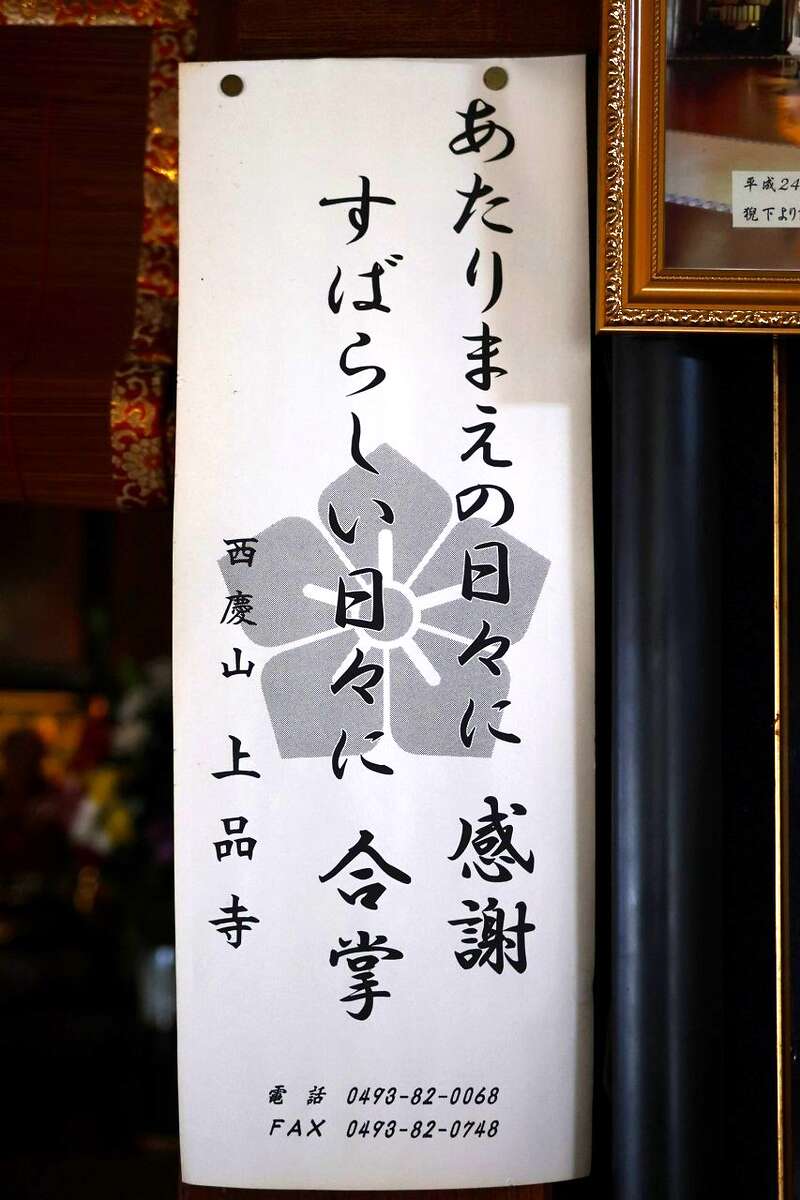 あたりまえの日々に 感謝
すばらしい日々に 合掌
西慶山 上品寺
電話 0493-82-0068
FAX 0493-82-0748
平成24
猊下より